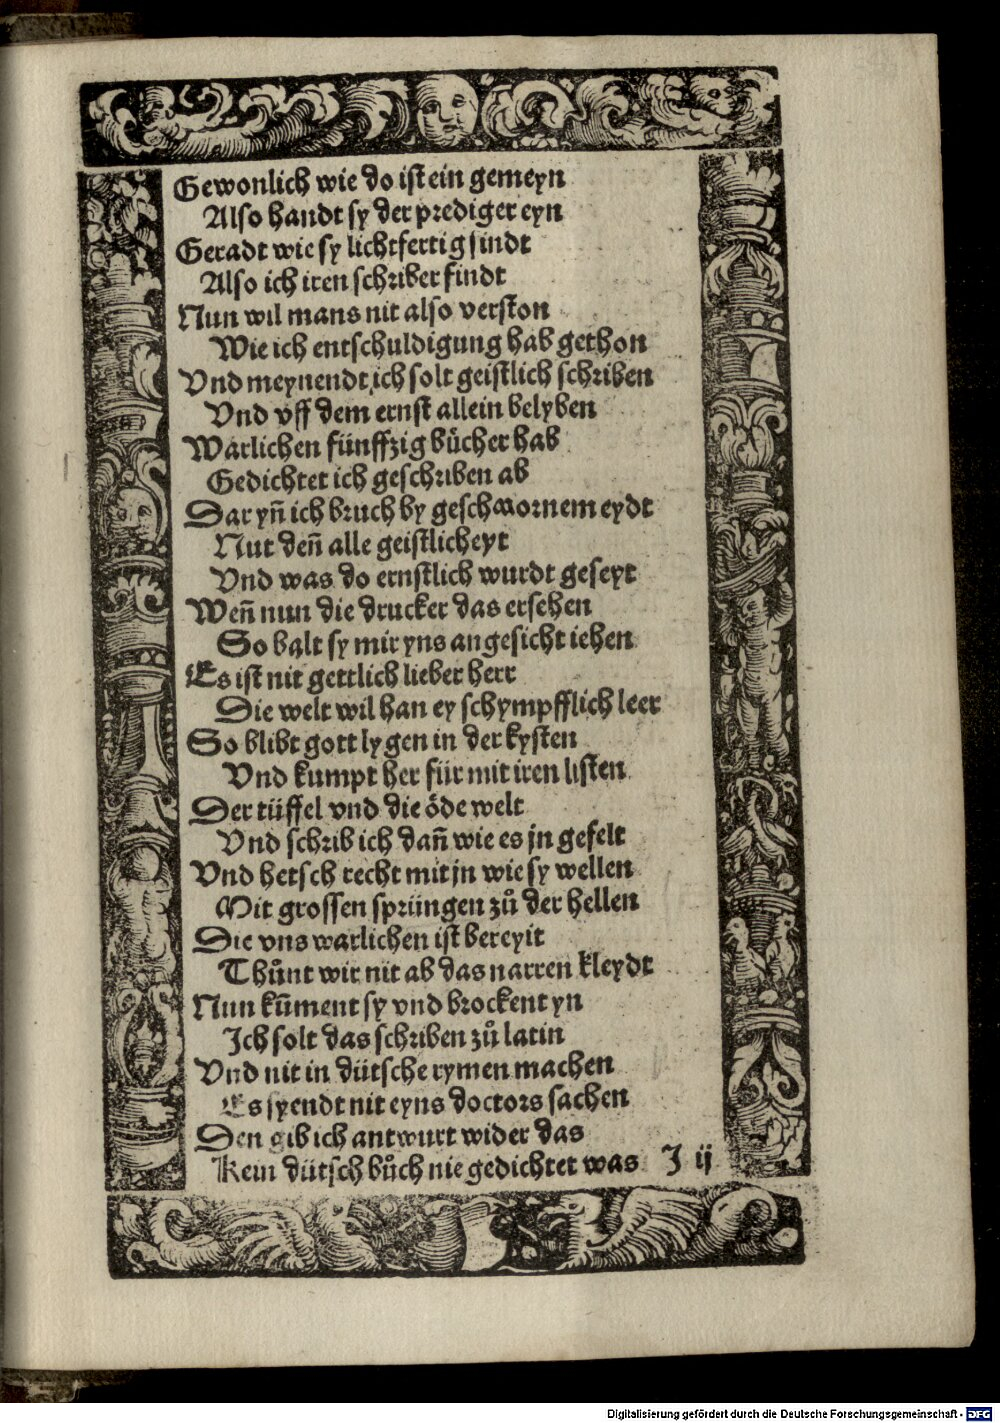 Gewonlich wie do ist ein gemeyn
Also handt sy der prediger eyn
Geradt wie sy lichtfertig sindt
Also ich iren schriber findt
Nun wil mans nit also verston
Wie ich entschuldigung hab gethon
Vnd meynendt ich solt geistlich schriben
Vnd vff dem ernst allein belyben
Warlichen fünffzig bücher hab
Gedichtet ich geschriben ab
Dar yñ ich bruch by geschwornem eydt
Nut deñ alle geistlicheyt
Vnd was do ernstlich wurdt geseyt
Weñ nun die drucker das ersehen
So balt sy mir yns angesicht iehen
Es ist nit gettlich lieber herr
Die welt wil han ey schympfflich leer
So blibt gott lygen in der kysten
Vnd kumpt her für mit iren listen
Der tüffel vnd die öde welt
Vnd schrib ich dañ wie es jn gefelt
Vnd hetsch recht mit jn wie sy wellen
Mit grossen sprüngen zů der hellen
Die vns warlichen ist bereyit
Thůnt wir nit ab das narren kleydt
Nun kūment sy vnd brockent yn
Ich solt das schriben zů latin
Vnd nit in dütsche rymen machen
Es syendt nit eyns doctors sachen
Den gib ich antwurt wider das
Kein dütsch bůch nie gedichtet was J ij
Digitalisierung gefördert durch die Deutsche Forschungsgemeinschaft - DFG